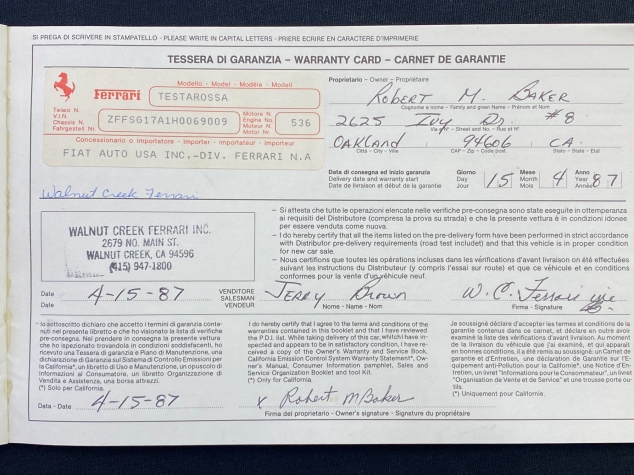 SI PREGA DI SCRIVERE IN STAMPATELLO - PLEASE WRITE IN CAPITAL LETTERS - PRIERE ECRIRE EN CARACTERE D'IMPRIMERIE
TESSERA DI GARANZIA – WARRANTY CARD – CARNET DE GARANTIE
Ferrari
Modello - Model - Modèle - Modell
TESTAROSSA
Telaio N.
V.I.N.
Chassis N.
Fahrgestell Nr.
ZFFSG17A1H0069009
Motore N.
Engine No.
Moteur N.
Motor Nr.
536
Concessionario o Importatore - Importer - Importateur - Importeur
FIAT AUTO USA INC.-DIV. FERRARI N.A
Proprietario - Owner - Propriétaire
ROBERT M. BAKER
Cognome e nome - Family and given Name - Prénom et Nom
2625 Ivy Dr. #8
Via e N° - Street and No. - Rue et N°
OAKLAND 94606 CA.
Città - City - Ville
CAP - Zip - Code post.
Stato - State - Etat
Data di consegna ed inizio garanzia
Delivery date and warranty start
Date de livraison et début de la garantie
Giorno
Day
Jour
15
Mese
Month
Mois
4
Anno
Year
87
Walnut Creek Ferrari
WALNUT CREEK FERRARI INC.
2679 NO. MAIN ST.
WALNUT CREEK, CA 94596
(415) 947-1800
– Si attesta che tutte le operazioni elencate nelle verifiche pre-consegna sono state eseguite in ottemperanza
ai requisiti del Distributore (compresa la prova su strada) e che la presente vettura è in condizioni idonee
per essere venduta come nuova.
– I do hereby certify that all the items listed on the pre-delivery form have been performed in strict accordance
with Distributor pre-delivery requirements (road test includet) and that this vehicle is in proper condition
for new car sale.
– Nous certifions que toutes les opérations incluses dans les vérifications d'avant livraison on été effectuées
suivant les instructions du Distributeur (y compris l'essai sur route) et que ce véhicule est en conditions
conformes pour la vente d'un véhicule neuf.
Date
4-15-87
VENDITORE
SALESMAN
VENDEUR
JERRY Brown
Nome - Name - Nom
W.C. Ferrari
Firma - Signature
Io sottoscritto dichiaro che accetto i termini di garanzia conte-
nuti nel presente libretto e che ho visionato la lista di verifiche
pre-consegna. Nel prendere in consegna la presente vettura
che ho ispezionato trovandola in condizioni soddisfacenti, ho
ricevuto una Tessera di Garanzia e Piano di Manutenzione, una
dichiarazione di Garanzia sul Sistema di Controllo Emissioni per
la California*, un libretto di Uso e Manutenzione, un opuscolo di
Informazioni al Consumatore, un libretto Organizzazione di
Vendita e Assistenza, una borsa attrezzi.
(*) Solo per California.
I do hereby certify that I agree to the terms and conditions of the
warranties contained in this booklet and that I have reviewed
the P.D.I. list. While taking delivery of this car, which I have in-
spected and appears to be in satisfactory condition, I have re-
ceived a copy of the Owner's Warranty and Service Book,
California Emission Control System Warranty Statement*, Ow-
ner's Manual, Consumer Information pamphlet, Sales and
Service Organization Booklet and tool Kit.
(*) Only for California.
Je soussigné déclare d'accepter les termes et conditions de la
garantie contenus dans ce carnet, et déclare en outre avoir
examiné la liste des vérifications d'avant livraison. Au moment
de la livraison du véhicule que j'ai examiné, et qui apparait
en bonnes conditions, il a été remis au soussigné: un Carnet de
Garantie et d'Entretien, une déclaration de Garantie sur l'E-
quipement anti-Pollution pour la Californie*, une Notice d'En-
tretien, un livret "Informations pour le Consommateur", un livret
"Organisation de Vente et de Service" et une trousse porte ou-
tils.
(*) Uniquement pour Californie.
Data - Date
4-15-87
x Robert M Baker
Firma del proprietario - Owner's signature - Signature du propriétaire